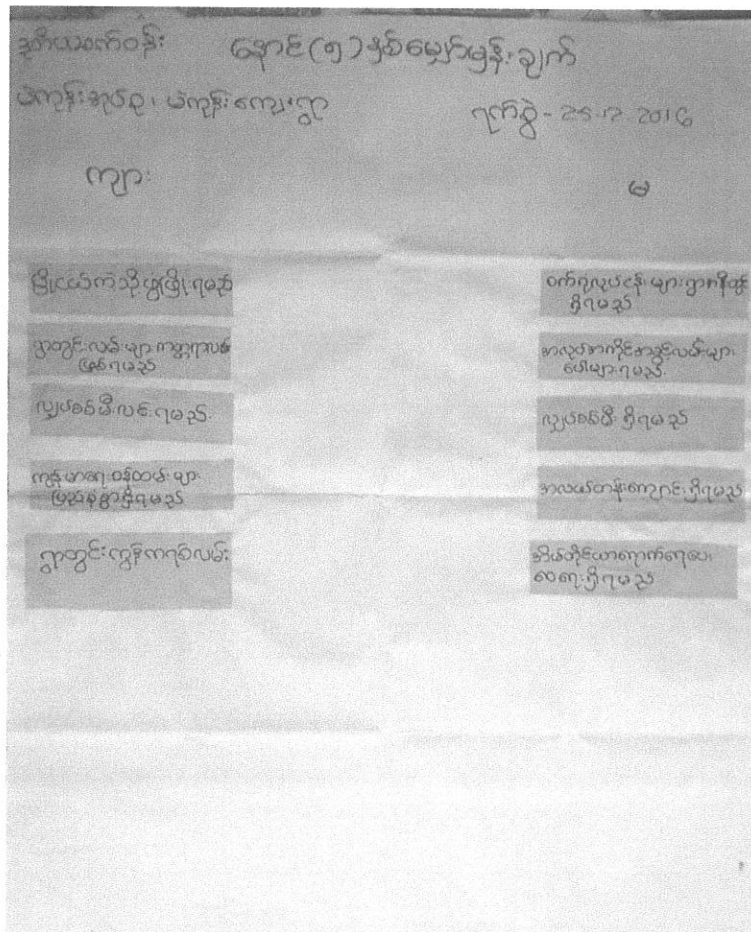 ဒုတိယသက်ဝန်း နောင်(၅)နှစ်မျှော်မှန်းချက်
ပဲကုန်းအုပ်စု၊ ပဲကုန်းကျေးရွာ ရက်စွဲ - 25.12.2016
ကျား မ
မြို့ငယ်ကဲ့သို့ဖွံ့ဖြိုးရမည်
ရွာတွင်းလမ်းများကတ္တရာလမ်း
ဖြစ်ရမည်
လျှပ်စစ်မီးလင်းရမည်
ကျန်းမာရေးဝန်ထမ်းများ
ပြည့်စုံစွာရှိရမည်
ရွာတွင်းကွန်ကရစ်လမ်း
စက်ရုံလုပ်ငန်းများရွာတိုင်း
ရှိရမည်
အလုပ်အကိုင်အခွင့်လမ်းများ
ပေါများရမည်
လျှပ်စစ်မီးရှိရမည်
အလယ်တန်းကျောင်းရှိရမည်
အိမ်တိုင်ယာရောက်ရေပေး
ဝေရေးရှိရမည်